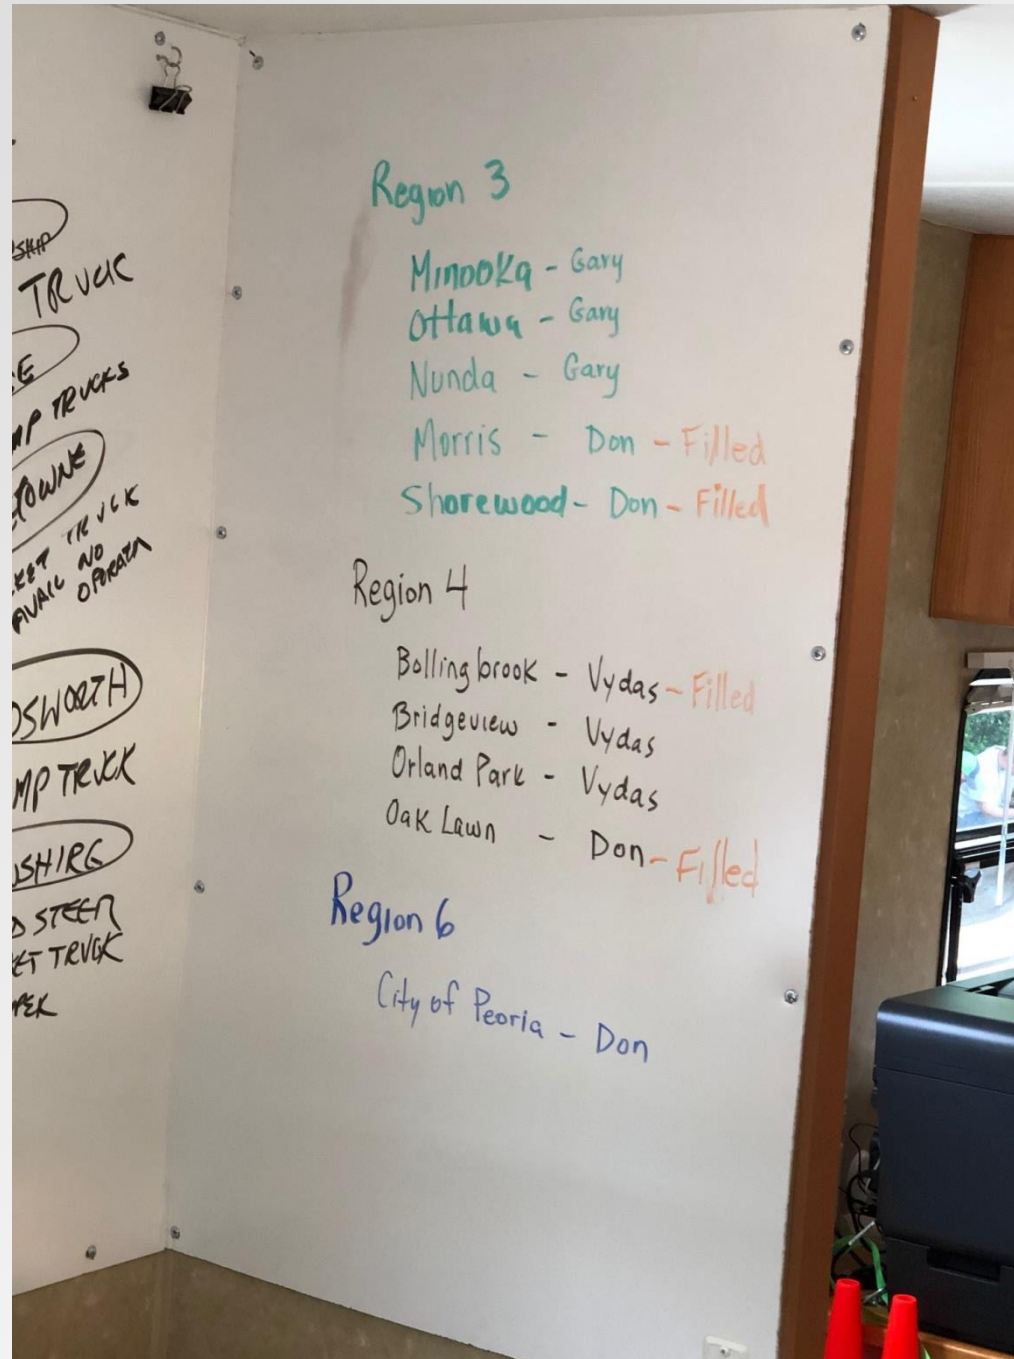 SHIP
TRUCK
TRUCKS
TOWNE
TRUCK
AVAIL NO
OPERATR
TRUCK
STEER
TRUCK
Region 3
Minooka - Gary
Ottawa - Gary
Nunda - Gary
Morris - Don - Filled
Shorewood - Don - Filled
Region 4
Bollingbrook - Vydas - Filled
Bridgeview - Vydas
Orland Park - Vydas
Oak Lawn - Don - Filled
Region 6
City of Peoria - Don